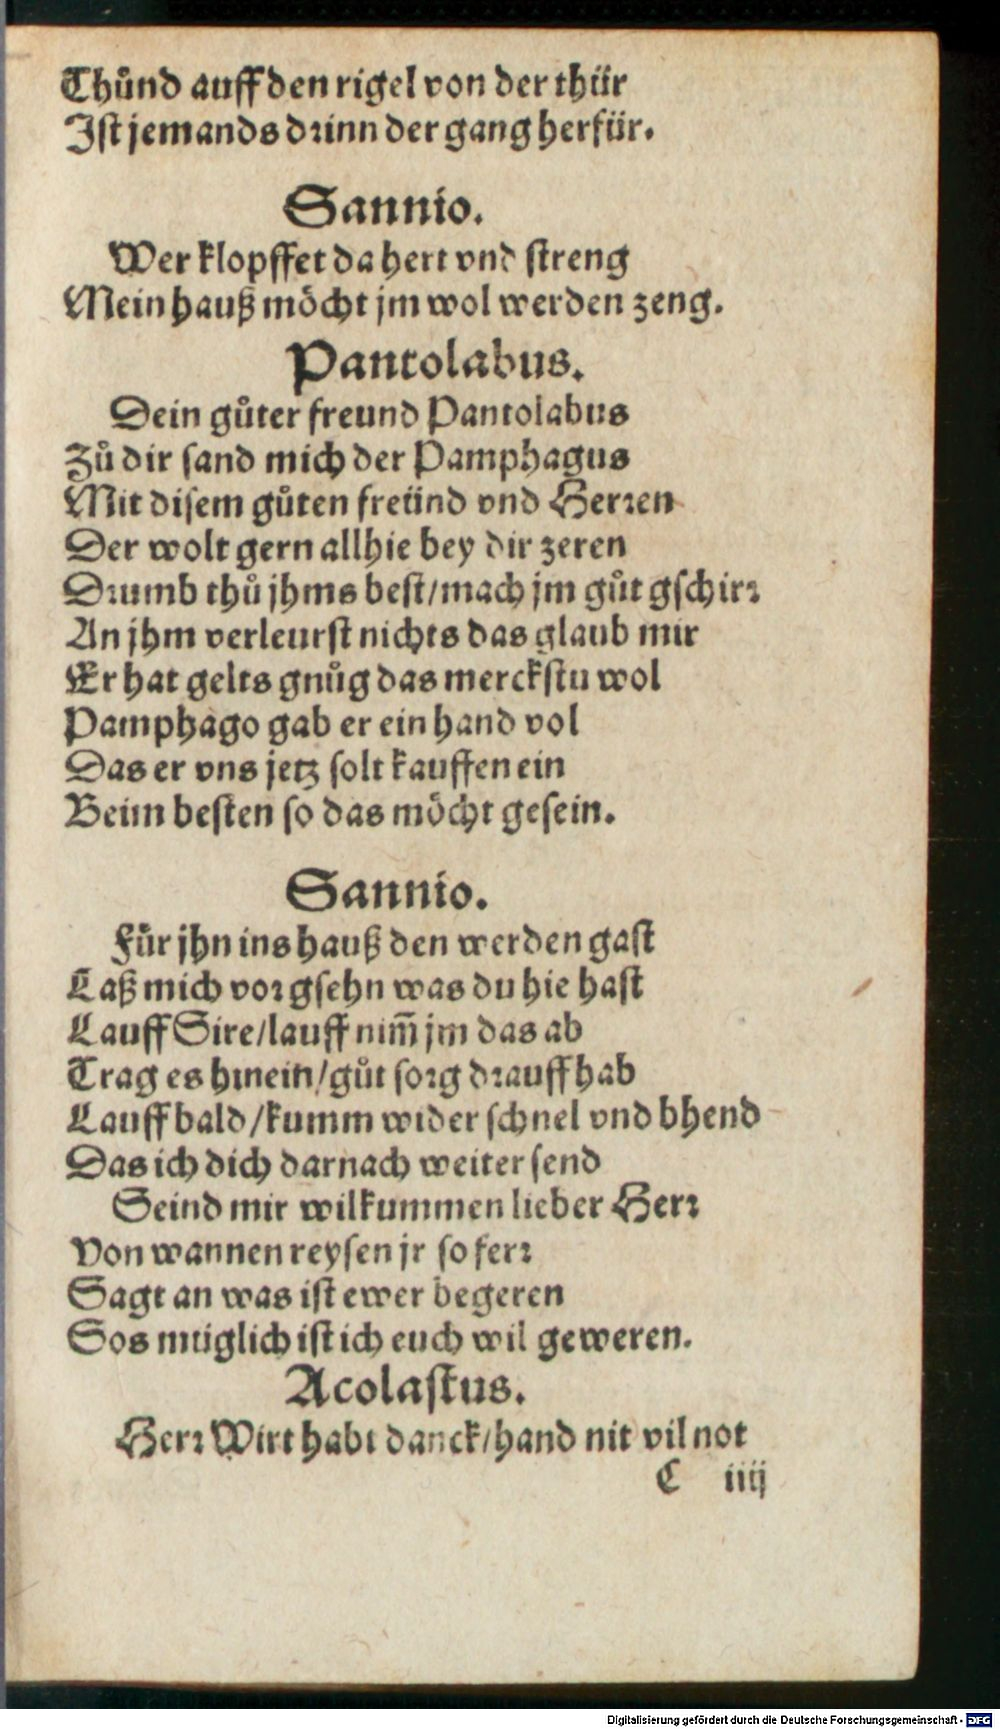 Thůnd auff den rigel von der thür
Ist jemands drinn der gang herfür.
Sannio.
Wer klopffet da hert vnd streng
Mein hauß möcht jm wol werden zeng.
Pantolabus.
Dein gůter freund Pantolabus
Zů dir sand mich der Pamphagus
Mit disem gůten freünd vnd Herren
Der wolt gern allhie bey dir zeren
Drumb thů jhms best/mach jm gůt gschirr
An jhm verleurst nichts das glaub mir
Er hat gelts gnůg das merckstu wol
Pamphago gab er ein hand vol
Das er vns jetz solt kauffen ein
Beim besten so das möcht gesein.
Sannio.
Für jhn ins hauß den werden gast
Laß mich vor gsehn was du hie hast
Lauff Sire/lauff nim̃ jm das ab
Trag es hinein/gůt sorg drauff hab
Lauff bald/kumm wider schnel vnd bhend
Das ich dich darnach weiter send
Seind mir wilkummen lieber Herr
Von wannen reysen jr so ferr
Sagt an was ist ewer begeren
Sos müglich ist ich euch wil geweren.
Acolastus.
Herr Wirt habt danck/hand nit vil not
C iiij
Digitalisierung gefördert durch die Deutsche Forschungsgemeinschaft - DFG